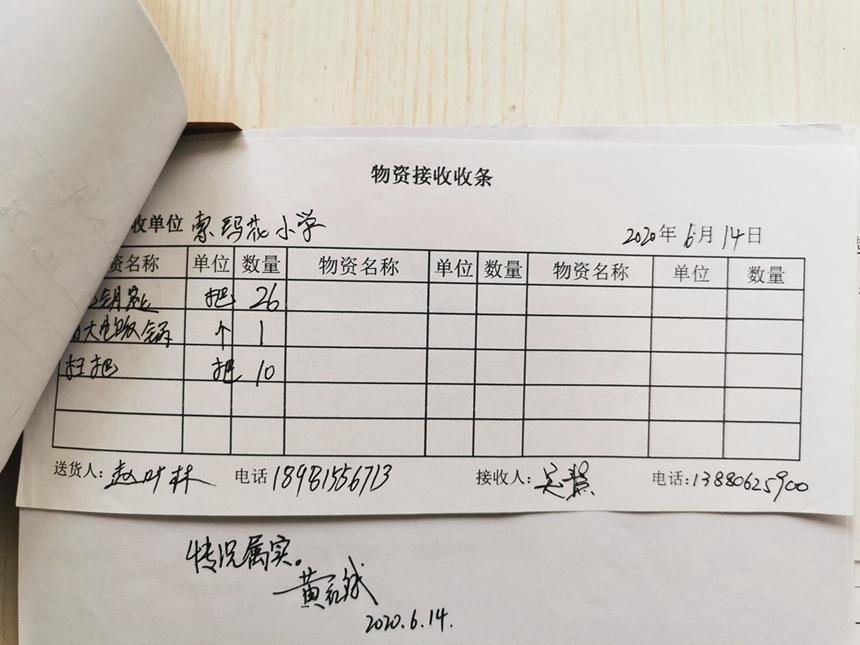 物资接收收条
收单位 索玛花小学 2020年6月14日
资名称 单位 数量 物资名称 单位 数量 物资名称 单位 数量
把 26
大电饭锅 个 1
扫把 把 10
送货人: 赵叶林 电话 18981556713 接收人: 吴 电话:13880625900
情况属实。
黄红
2020.6.14.